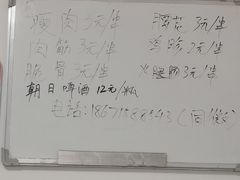 瘦肉3元/串 泥若3元/串
肉筋3元/串 鸡胗2元/串
脆骨3元/串 火腿肠3元/串
朝日啤酒12元/瓶
电话: (同微)